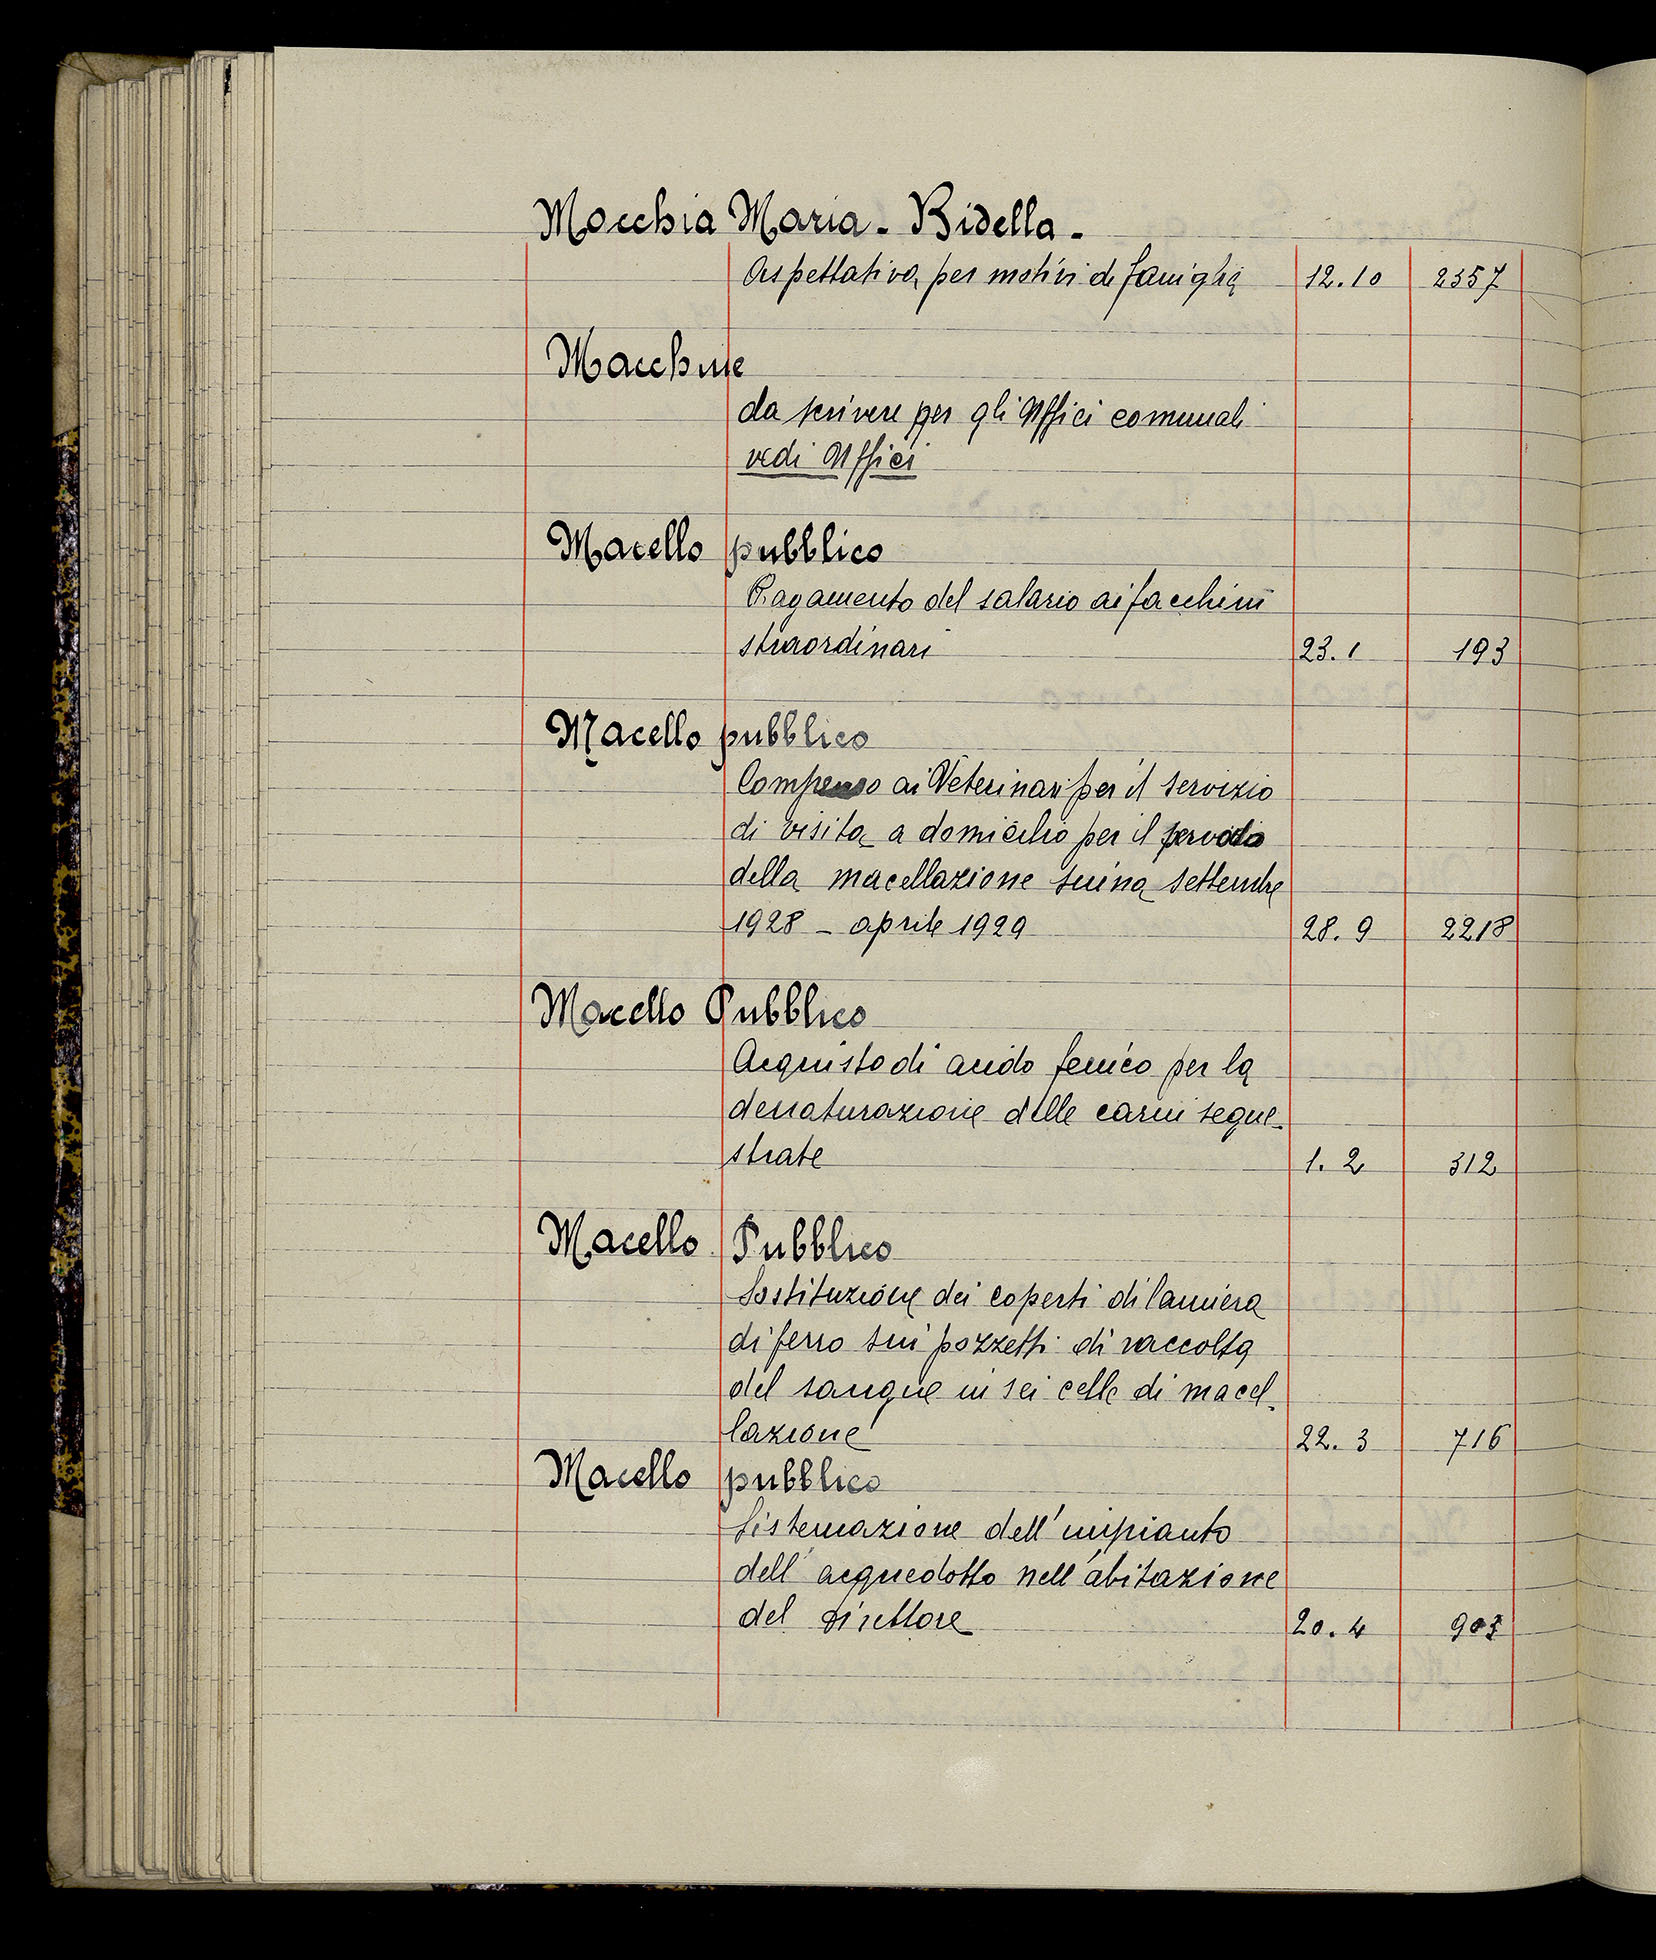 Macchia Maria - Bidella -
Aspettativa per motivi di famiglia 12.10 2357
Macchine
da scrivere per gli Uffici comunali
vedi Uffici
Macello pubblico
Pagamento del salario ai facchini
straordinari 23.1 193
Macello pubblico
Compenso ai Veterinari per il servizio
di visita a domicilio per il periodo
della macellazione suina settembre
1928 - aprile 1929 28.9 2218
Macello Pubblico
Acquisto di acido fenico per la
denaturazione delle carni seque-
strate 1.2 312
Macello Pubblico
Sostituzione dei coperti di lamiera
di ferro sui pozzetti di raccolta
del sangue in sei celle di macel-
lazione 22.3 716
Macello pubblico
Sistemazione dell'impianto
dell'acquedotto nell'abitazione
del Direttore 20.4 903